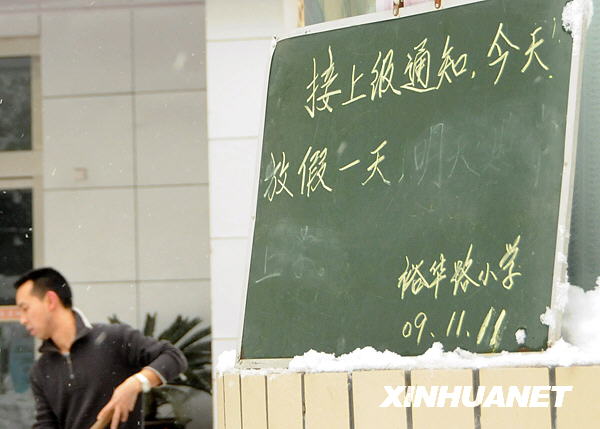 接上级通知,今天
放假一天,明天
裕华路小学
09.11.11
XINHUANET